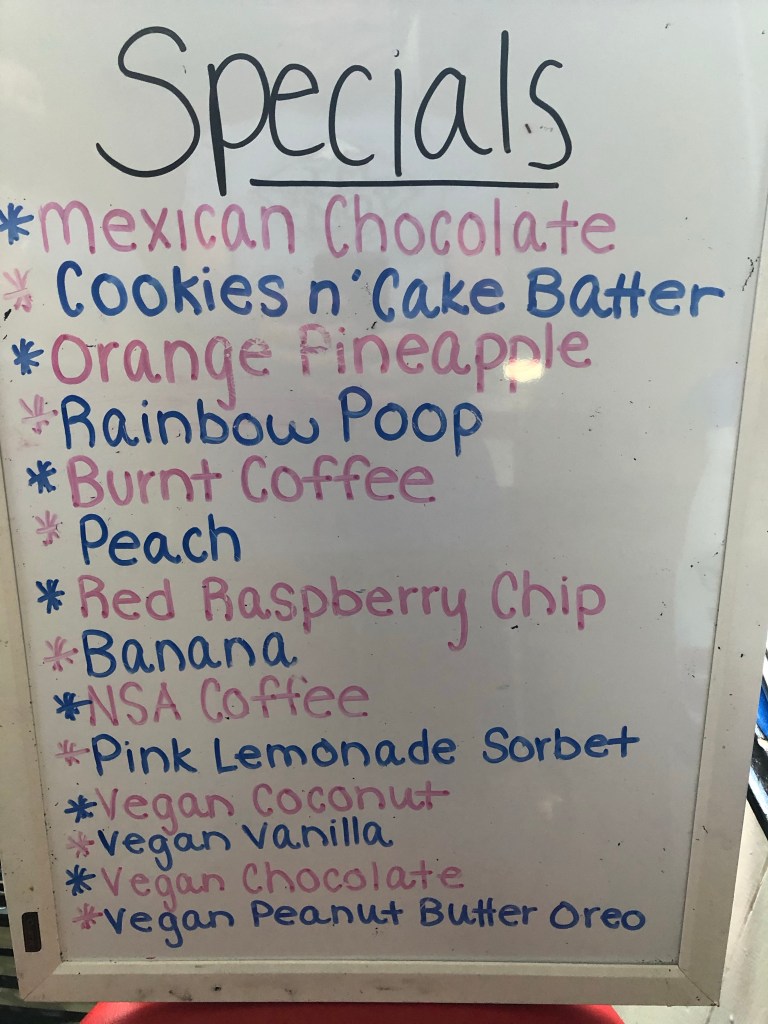 Specials
* Mexican Chocolate
* Cookies n' Cake Batter
* Orange Pineapple
* Rainbow Poop
* Burnt Coffee
* Peach
* Red Raspberry Chip
* Banana
* NSA Coffee
* Pink Lemonade Sorbet
* Vegan Coconut
* Vegan Vanilla
* Vegan Chocolate
* Vegan Peanut Butter Oreo